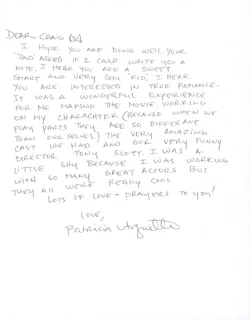 DEAR CRAIG
I HOPE YOU ARE DOING WELL. YOUR
DAD ASKED IF I COULD WRITE YOU A
NOTE. I HEAR YOU ARE A SWEET
SMART AND VERY COOL KID. I HEAR
YOU ARE INTERESTED IN TRUE ROMANCE.
IT WAS A WONDERFUL EXPERIENCE
FOR ME MAKING THE MOVIE. WORKING
ON MY CHARACHTER (BECAUSE WHEN WE
PLAY PARTS THEY ARE SO DIFFERANT
THAN OURSELVES) THE VERY AMAZING
CAST WE HAD AND OUR VERY FUNNY
DIRECTOR TONY SCOTT. I WAS A
LITTLE SHY BECAUSE I WAS WORKING
WITH SO MANY GREAT ACTORS BUT
THEY ALL WERE REALLY COOL
LOTS OF LOVE + PRAYERS TO YOU!
LOVE,
Patricia Arquette